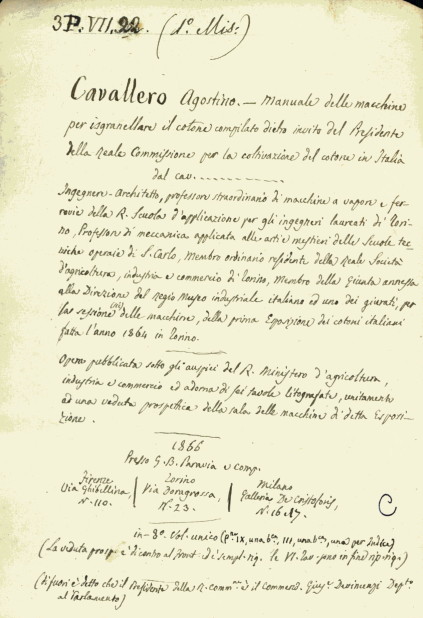 3P. VII. 22. (1º Mis:)
Cavallero Agostino. — Manuale delle macchine
per isgranellare il cotone compilato dietro invito del Presidente
della Reale Commissione per la coltivazione del cotone in Italia
dal cav. . . . . . . . . . . . .
Ingegnere-Architetto, professore straordinario di macchine a vapore e fer-
rovie della R. Scuola d'applicazione per gli ingegneri laureati di Tori-
no, Professore di meccanica applicata alle arti e mestieri delle Scuole tec-
niche operaie di S. Carlo, Membro ordinario residente della Reale Società
d'agricoltura, industria e commercio di Torino, Membro della Giunta annessa
alla Direzione del Regio Museo industriale italiano ed uno dei giurati, per
la sezione (sic) delle macchine, della prima Esposizione dei cotoni italiani
fatta l'anno 1864 in Torino.
Opera pubblicata sotto gli auspici del R. Ministero d'agricoltura,
industria e commercio ed adorna di sei tavole litografate, unitamente
ad una veduta prospettica della sala delle macchine di detta Esposi-
zione.
1866
Presso G. B. Paravia e comp.
Firenze Torino Milano
Via Ghibellina, Via Doragrossa, Galleria De Cristoforis,
N. 110. Nº 23. N. 16 e 17.
C
in-8º. Vol. unico (IX, una III, una una per Indice)
(La veduta prosp. è di contro al front. le VI. Tav. in fine)
(Di fuori è detto che il Presidente della R. comm.ne è il commend. Devincenzi Dep.to
al Parlamento)